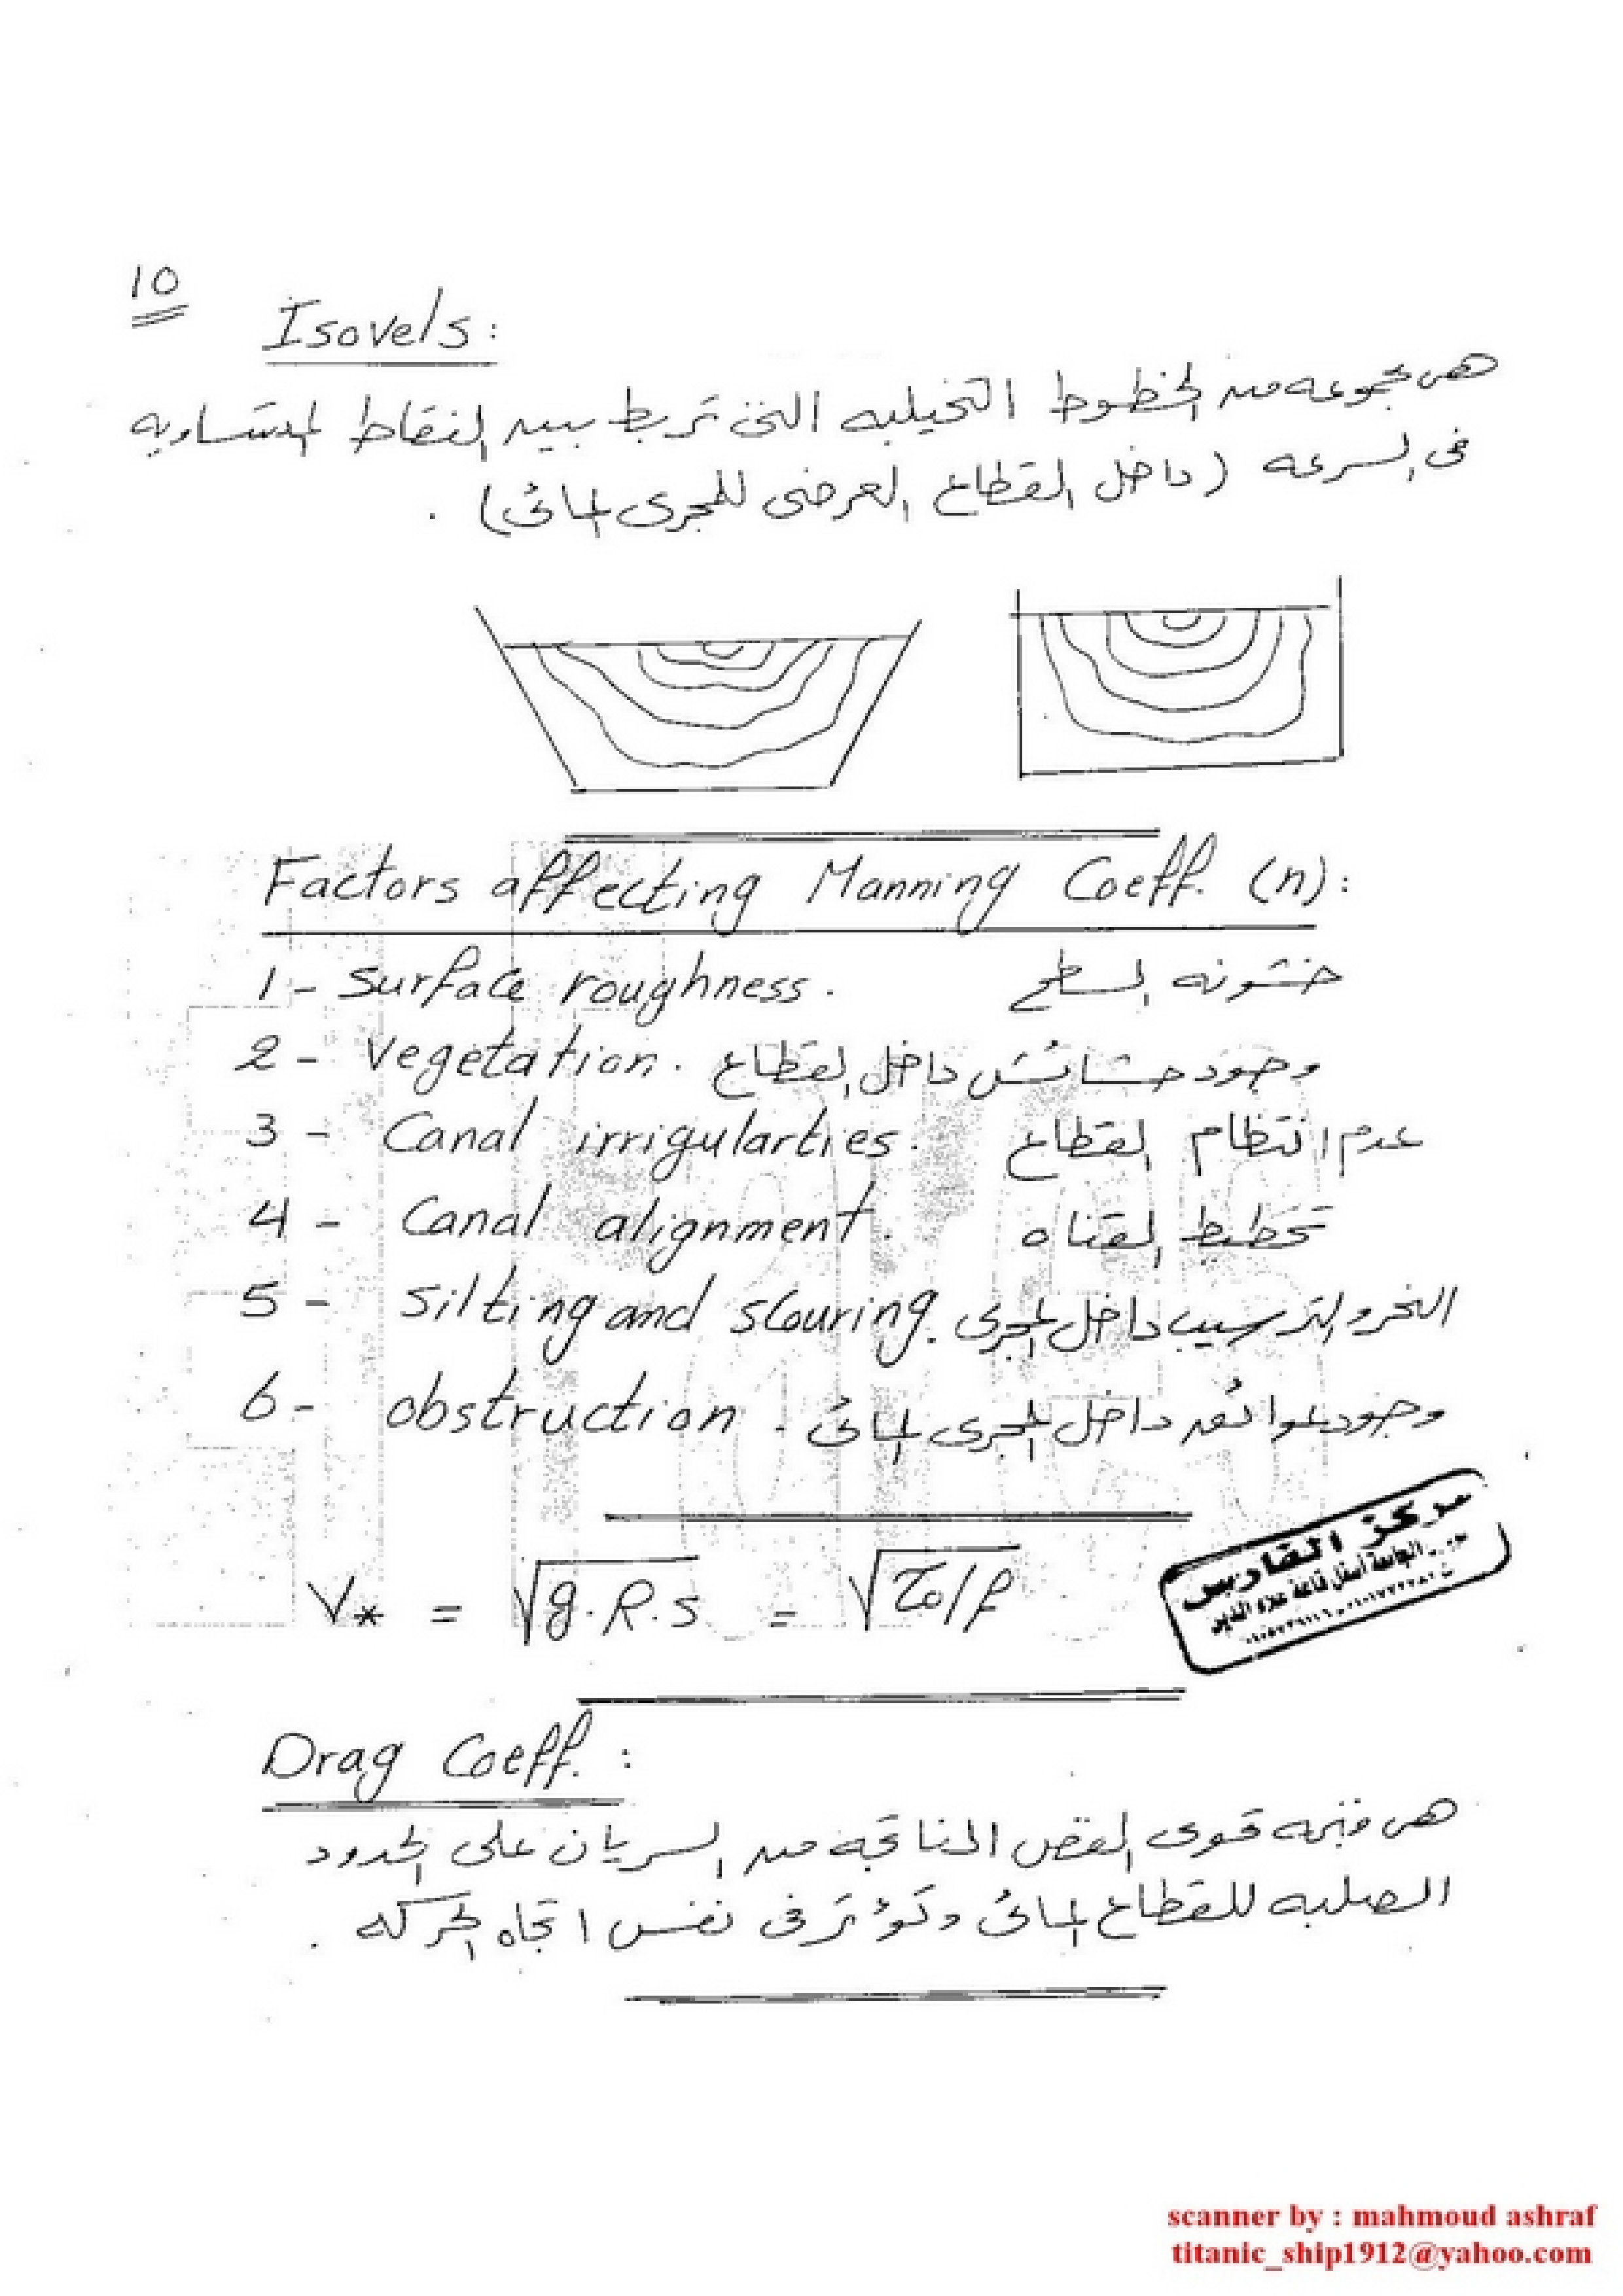 10
Isovels:
هى مجموعه من الخطوط التخيليه التى تربط بين النقاط المتساويه
فى السرعه (داخل القطاع العرضى للمجرى المائى).
Factors affecting Manning Coeff. (n):
1- Surface roughness. خشونه السطح
2- Vegetation. وجود حشائش داخل القطاع
3- Canal irrigularties. عدم انتظام القطاع
4- Canal alignment. تخطيط القناه
5- Silting and scouring. النحر والترسيب داخل المجرى
6- obstruction. وجود عوائق داخل المجرى المائى
مركز الفارس
V* = √g.R.s = √τo/ρ
Drag Coeff.:
هى قيمه قوى القص الناتجه من السريان على الحدود
الصلبه للقطاع المائى وتؤثر فى نفس اتجاه الحركه.
scanner by : mahmoud ashraf
titanic_ship1912@yahoo.com